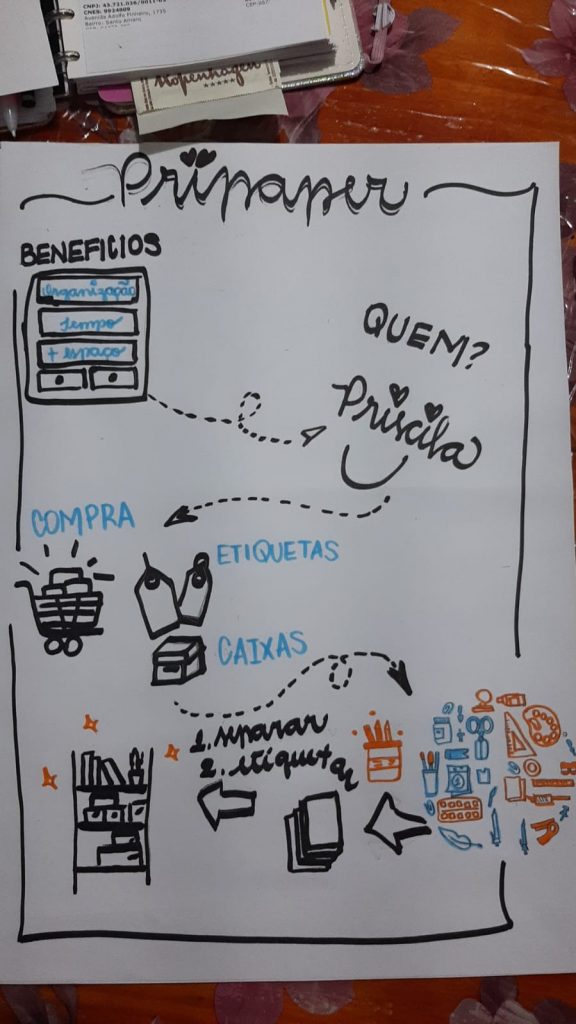 CNPJ: 43.721.036/0011-03
CNES: 9924809
Avenida Adolfo Pinheiro, 1735
Bairro: Santo Amaro
Kopenhagen
Pripaper
BENEFICIOS
Organização
tempo
+ espaço
QUEM?
Priscila
COMPRA
ETIQUETAS
CAIXAS
1. separar
2. etiquetar